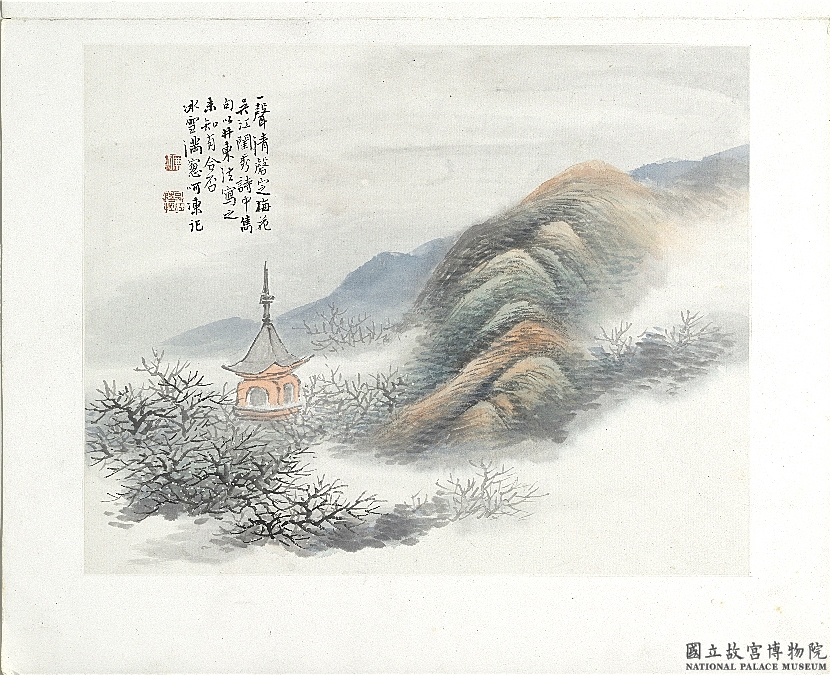 一聲清磬定梅花
吳江閨秀詩中雋
句以井東法寫之
未知有合否
冰雪滿窗呵凍記
國立故宮博物院
NATIONAL PALACE MUSEUM